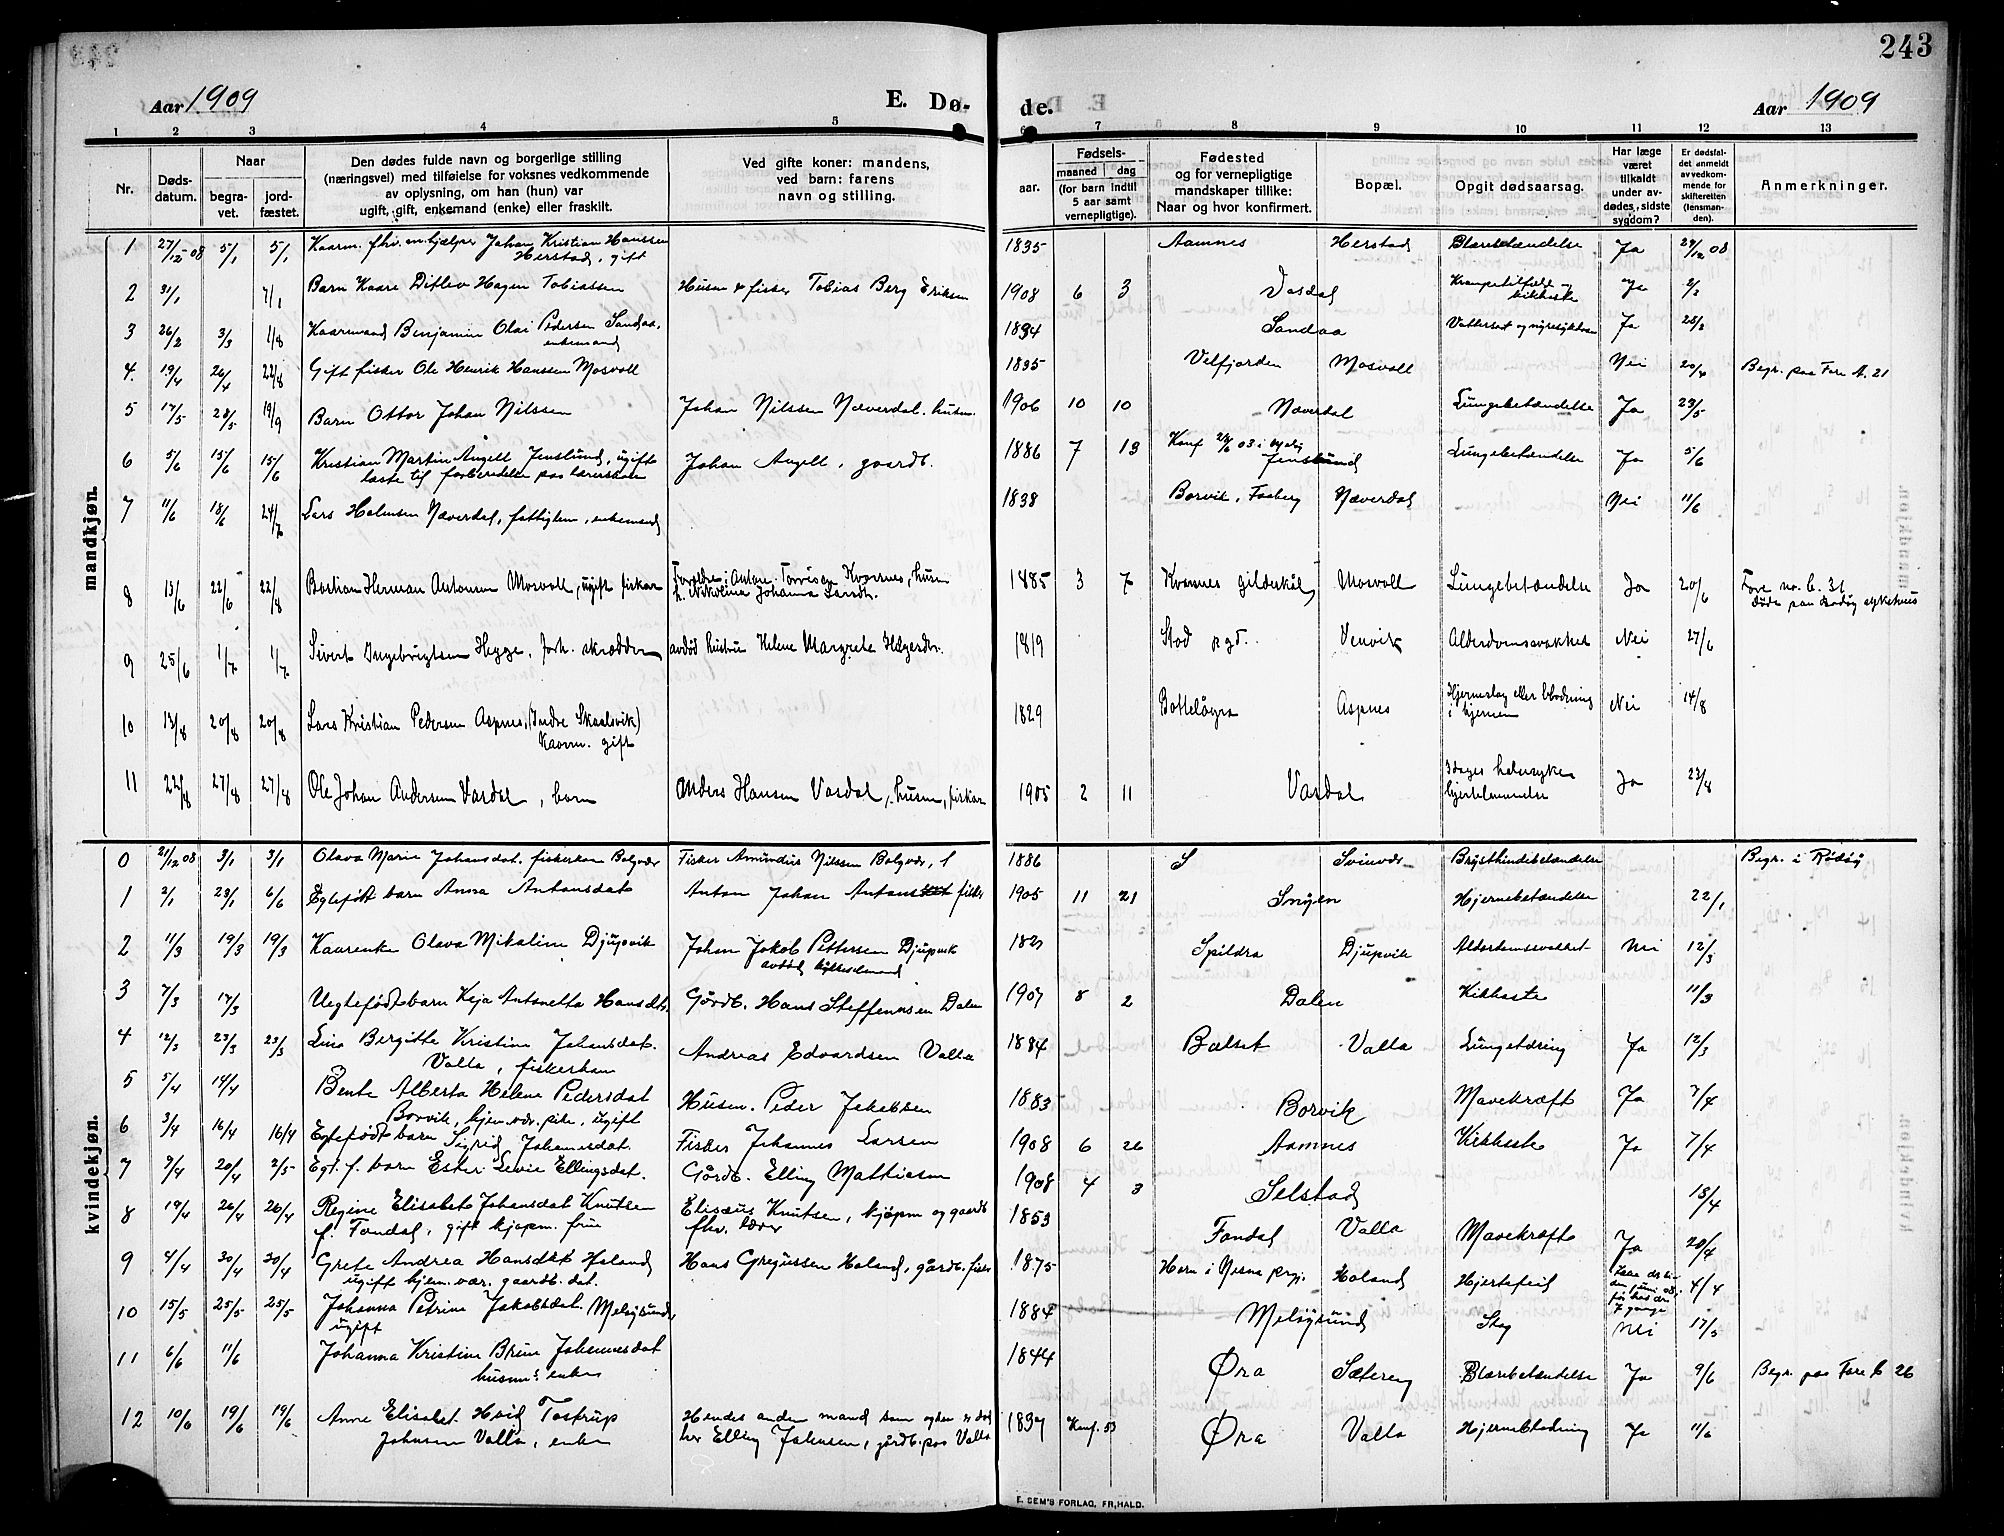 243
Aar 1909
E. Dø-
de.
Aar 1909
1 2 3 4 5 6 7 8 9 10 11 12 13
Nr.
Døds-
datum.
Naar
begra-
vet.
jord-
fæstet.
Den dødes fulde navn og borgerlige stilling
(næringsvei) med tilføielse for voksnes vedkommende
av oplysning, om han (hun) var
ugift, gift, enkemand (enke) eller fraskilt.
Ved gifte koner: mandens,
ved barn: farens
navn og stilling.
aar.
Fødsels-
maaned dag
(for barn indtil
5 aar samt
vernepligtige).
Fødested
og for vernepligtige
mandskaper tillike:
Naar og hvor konfirmert.
Bopæl.
Opgit dødsaarsag.
Har læge
været
tilkaldt
under av-
dødes, sidste
sygdom?
Er dødsfal-
det anmeldt
av vedkom-
mende for
skifteretten
(lensman-
den).
Anmerkninger.
mandkjøn.
1 27/12 08 5/1 5/1 Kaarm. fhv. m.hjælper Johan Kristian Hanssen 1835 Aamnes Herstad Blærebetændelse Ja 29/12 08
Herstad, gift
2 31/1 7/1 Barn Kaare Ditlev Hagen Tobiassen Husm & fisker Tobias Berg Eriksen 1908 6 3 Vasdal Krampetilfælde og Ja 2/2
kikhoste
3 26/2 3/3 1/8 Kaarmand Benjamin Olai Pedersen Sandaa, 1834 Sandaa Vattersot og nyresykdom Ja 28/2
enkemand
4. 19/4 26/4 22/8 Gift fisker Ole Henrik Hanssen Mosvoll 1835 Velfjorden Mosvoll Nei 20/4 Begr. paa Fore N. 21
5 17/5 28/5 19/9 Barn Ottar Johan Nilssen Johan Nilssen Næverdal, husm. 1906 10 10 Næverdal Lungebetændelse Ja 23/5
6 5/6 15/6 15/6 Kristian Martin Angell Jenslund, ugift Johan Angell, gaardb. 1886 7 13 Konf 03 i Jenslund Lungebetændelse Ja 5/6
læste til forberedelse paa lærerskole
7 11/6 18/6 24/7 Lars Halmsen Næverdal, fattiglem, enkemand 1838 Borvik, Næverdal Nei 11/6
8 13/6 22/6 22/8 Bastian Herman Antonsen Mosvoll, ugift fisker Forældre: Anton Tørrisen Kvarnes, husm 1885 3 7 Kvarnes Gildeskål Mosvoll Lungebetændelse Ja 20/6 Fore no. 6. 31
h. Nikolina Johanna Larsdt. døde paa Rødøy sykehus
9 25/6 1/7 1/7 Sivert Ingebrigtsen Hegge, forh. skrædder avdød hustru Helene Margrete Holgersdtr. 1819 Stod pgd. Venvik Alderdomssvakhet Nei 27/6
10 13/8 20/8 20/8 Lars Kristian Pedersen Aspnes, (Indre Skaalsvik) 1829 Botteløyra Aspnes Hjerneslag eller blødning Nei 14/8
Kaarm. gift i hjernen
11 22/8 27/8 27/8 Ole Johan Andersen Vasdal, barn Anders Hansen Vasdal, husm, fisker 1905 2 11 Vasdal 3 dages halssyke Ja 23/8
kvindekjøn.
0 21/12 08 3/1 3/1 Olava Marie Johansdat. fiskerkon Bolgvær Fisker Amundus Nilssen Bolgvær, 1886 S Svinvær Brysthindebetændelse Begr. i Rødøy
1 2/1 23/1 6/6 Egtefødt barn Anna Antonsdat Anton Johan Antons fisker 1905 11 21 Snyen Hjernebetændelse 22/1
2 11/3 19/3 19/3 Kaarenke Olava Mikaline Djupvik Johan Jakob Pettersen Djupvik 182 Spildra Djupvik Alderdomssvakhet Nei 12/3
avdød
3 7/3 17/3 Uegtefødt barn Keja Antonetta Hansdtr. Gårdb. Hans Steffensen Dalen 1907 8 2 Dalen Kikhoste 11/3
4 12/3 23/3 23/3 Lina Bergitte Kristine Johansdat. Andreas Edvardsen Valla 1884 Balset Valla Lungetæring Ja 12/3
Valla, fiskerkone
5 5/4 14/4 Bente Alberta Helene Pedersdat Husm. Peder Jakobsen 1883 Borvik Mavekræft Ja 7/4
Borvik, hjemvær. pike, ugift
6 3/4 16/4 16/4 Egtefødt barn Sigrid Johannesdat. Fisker Johannes Larsen 1908 6 26 Aamnes Kikhoste Ja 7/4
7 9/4 20/4 2/5 Egt. f. barn Ester Levie Ellingsdat. Gårdb. Elling Mathiesen 1908 4 3 Selstad 13/4
8 19/4 26/4 26/4 Regine Elisabet Johansdat Knutsen Elisæus Knutsen, kjøpm og gaardb 1853 Fondal Valla Mavekræft Ja 20/4
f. Fondal, gift kjøpm. frue fhv. lærer
9 4/4 30/4 30/4 Grete Andrea Hansdat Holand Hans Gregussen Holand, gårdb. fisker 1875 Horn i Nesna prgj. Holand Hjertefeil 4/4
ugift hjem. vær. gaardb. dat.
10 15/5 25/5 25/5 Johanna Petrine Jakobsdat. Meløysund 1884 Meløysund Slag Nei 17/5
ugift
11 6/6 11/6 Johanna Kristine Brun Johannesdat 1844 Øra Sætereng Blærebetændelse Ja 9/6 Begr. paa Fore 26
husm: enke
12 10/6 19/6 19/6 Anne Elisabet Hvid Tostrup Hendes anden mand som ogsaa er død 1837 Konf. 53 Øra Valla Hjerneblødning Ja 11/6
Johnsen Valla, enke her Elling Johnsen, gårdb. paa Valla
E. SEM'S FORLAG, FR,HALD.